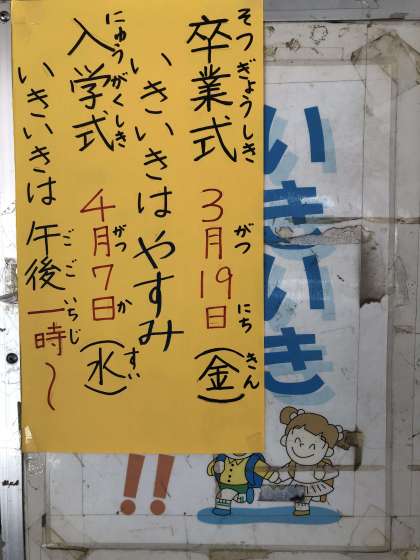 卒業式 3月19日(金)
そつぎょうしき がつ にち きん
いきいきはやすみ
入学式 4月7日(水)
にゅうがくしき がつ か すい
いきいきは午後一時〜
ごご いちじ
いきいき
!!